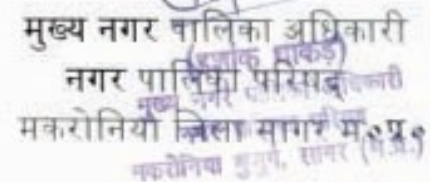 मुख्य नगर पालिका अधिकारी
नगर पालिका परिषद
मकरोनिया जिला सागर म०प्र०
मुख्य नगर
मकरोनिया बुजुर्ग, सागर (म.प्र.)